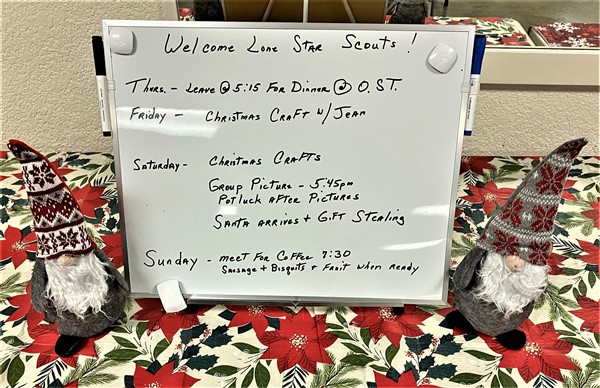 Welcome Lone Star Scouts!
Thurs. - Leave @ 5:15 For Dinner @ O.S.T.
Friday - Christmas Craft w/ Jean
Saturday - Christmas Crafts
Group Picture - 5:45pm
Potluck After Pictures
Santa arrives + Gift Stealing
Sunday - meet for Coffee 7:30
Sausage + Bisquits + Fruit when ready